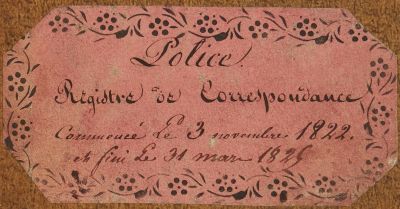 Police.
Régistre de Correspondance
Commencé Le 3 novembre 1822.
et fini Le 31 mars